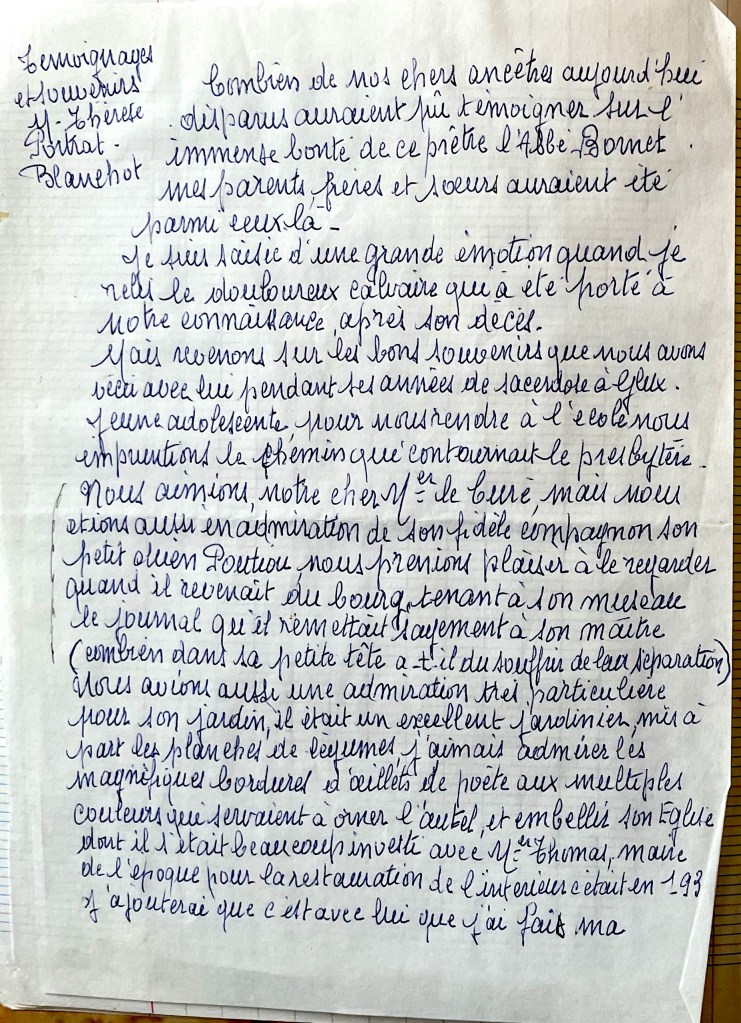 Temoignages
et souvenirs
M-Thérèse
Portrat-
Blanchot
Combien de nos chers ancêtres aujourd'hui
disparus auraient pû témoigner sur l'
immense bonté de ce prêtre l'Abbé Bornet.
mes parents, frères et soeurs auraient été
parmi ceux-là-
Je suis saisie d'une grande émotion quand je
relis le douloureux calvaire qui à été porté à
notre connaissance, après son décès.
Mais revenons sur les bons souvenirs que nous avons
vécu avec lui pendant ses années de sacerdose à Glux.
Jeune adolescente pour nous rendre à l'école nous
empruntions le chemin qui contournait le presbytère.
Nous aimions, notre cher Mer le Curé, mais nous
étions aussi en admiration de son fidèle compagnon son
petit chien Poutiou, nous prenions plaisir à le regarder
quand il revenait du bourg, tenant à son museau
le journal qu'il remettait sagement à son maître
(combien dans sa petite tête a-t-il du souffrir de leur séparation)
Nous avions aussi une admiration très particulière
pour son jardin, il était un excellent jardinier, mis à
part les planches de légumes, j'aimais admirer les
magnifiques bordures d'oeillets de poète aux multiples
couleurs qui servaient à orner l'autel, et embellir son Eglise
dont il s'était beaucoup investi avec Mer Thomas, maire
de l'époque pour la restauration de l'intérieur c'était en 193
J'ajouterai que c'est avec lui que j'ai fais ma